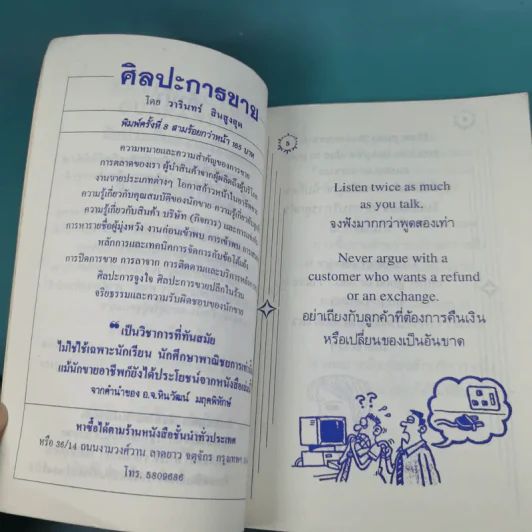 ศิลปะการขาย
โดย วารินทร์ สินสูงสุด
พิมพ์ครั้งที่ 8 สามร้อยกว่าหน้า 165 บาท
ความหมายและความสำคัญของการขาย
การตลาดของเรา ผู้นำสินค้าจากผู้ผลิตถึงผู้บริโภค
งานขายประเภทต่างๆ โอกาสก้าวหน้าในอาชีพขาย
ความรู้เกี่ยวกับคุณสมบัติของนักขาย
ความรู้เกี่ยวกับสินค้า บริษัท (กิจการ)
การหารายชื่อผู้มุ่งหวัง งานก่อนเข้าพบ การเข้าพบ
หลักการและเทคนิคการจัดการกับข้อโต้แย้ง
การปิดการขาย การลาจาก การติดตามและบริการหลังการขาย
ศิลปะการจูงใจ ศิลปะการขายปลีกในร้าน
จริยธรรมและความรับผิดชอบของนักขาย
❝เป็นวิชาการที่ทันสมัย
ไม่ใช่เฉพาะนักเรียน นักศึกษาพาณิชยการเท่านั้น
แม้นักขายอาชีพก็ยังได้ประโยชน์จากหนังสือเล่มนี้
จากคำนำของ อ.จ.หินวัฒน์ มฤคพิทักษ์
หาซื้อได้ตามร้านหนังสือชั้นนำทั่วประเทศ
หรือ 36/14 ถนนงามวงศ์วาน ลาดยาว จตุจักร กรุงเทพฯ
โทร. 5809686
5
Listen twice as much
as you talk.
จงฟังมากกว่าพูดสองเท่า
Never argue with a
customer who wants a refund
or an exchange.
อย่าเถียงกับลูกค้าที่ต้องการคืนเงิน
หรือเปลี่ยนของเป็นอันขาด
??